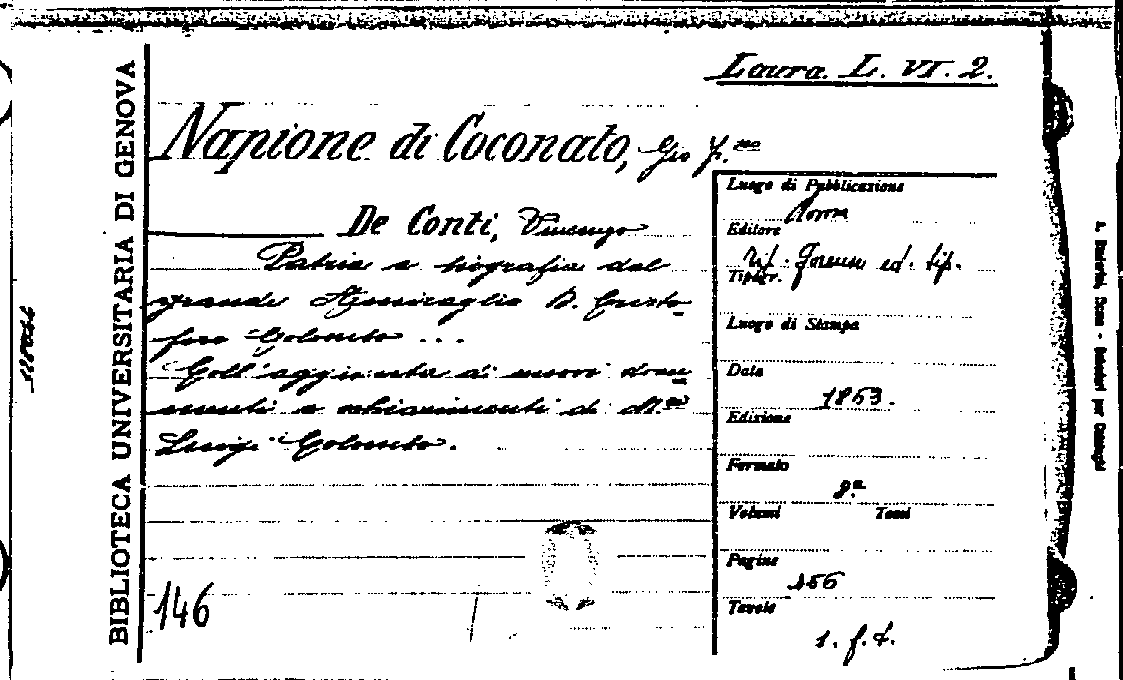 Laura. L. VI. 2.
Napione di Coconato, Gio F.co
De Conti, Vincenzo
Patria e biografia del
grande Ammiraglio D. Cristo-
foro Colombo ...
Coll'aggiunta di nuovi docu-
menti e schiarimenti di M.re
Luigi Colombo.
146
Luogo di Pubblicazione
Roma
Editore
Tip. Forense ed. tip.
Tipogr.
Luogo di Stampa
Data
1853.
Edizione
Formato
8.º
Volumi Tomi
Pagine
456
Tavole
1. f. t.
BIBLIOTECA UNIVERSITARIA DI GENOVA